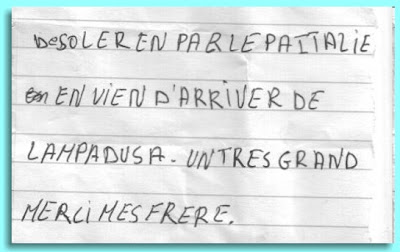 DeSOLER EN PARLE PA ITALIE
EN VIEN D'ARRIVER DE
LAMPADUSA. UN TRES GRAND
MERCI MES FRERE.